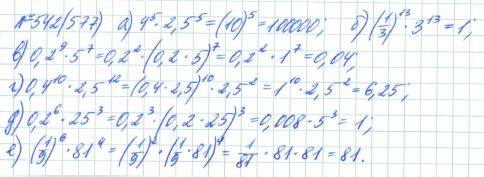 №542(577) а) 4⁵·2,5⁵=(10)⁵=100000; б) (1/3)¹³·3¹³=1;
в) 0,2⁹·5⁷=0,2²·(0,2·5)⁷=0,2²·1⁷=0,04;
г) 0,4¹⁰·2,5¹²=(0,4·2,5)¹⁰·2,5²=1¹⁰·2,5²=6,25;
д) 0,2⁶·25³=0,2³·(0,2·25)³=0,008·5³=1;
е) (1/9)⁶·81⁴=(1/9)²·(1/9·81)⁴=1/81·81·81=81.